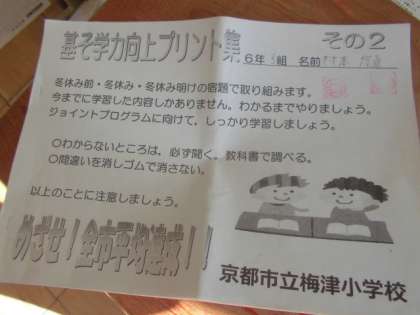 基そ学力向上プリント集 その２
6年 組 名前
冬休み前・冬休み・冬休み明けの宿題で取り組みます。
今までに学習した内容しかありません。わかるまでやりましょう。
ジョイントプログラムに向けて、しっかり学習しましょう。
○わからないところは、必ず聞く。教科書で調べる。
○間違いを消しゴムで消さない。
以上のことに注意しましょう。
めざせ！全市平均達成！！
京都市立梅津小学校